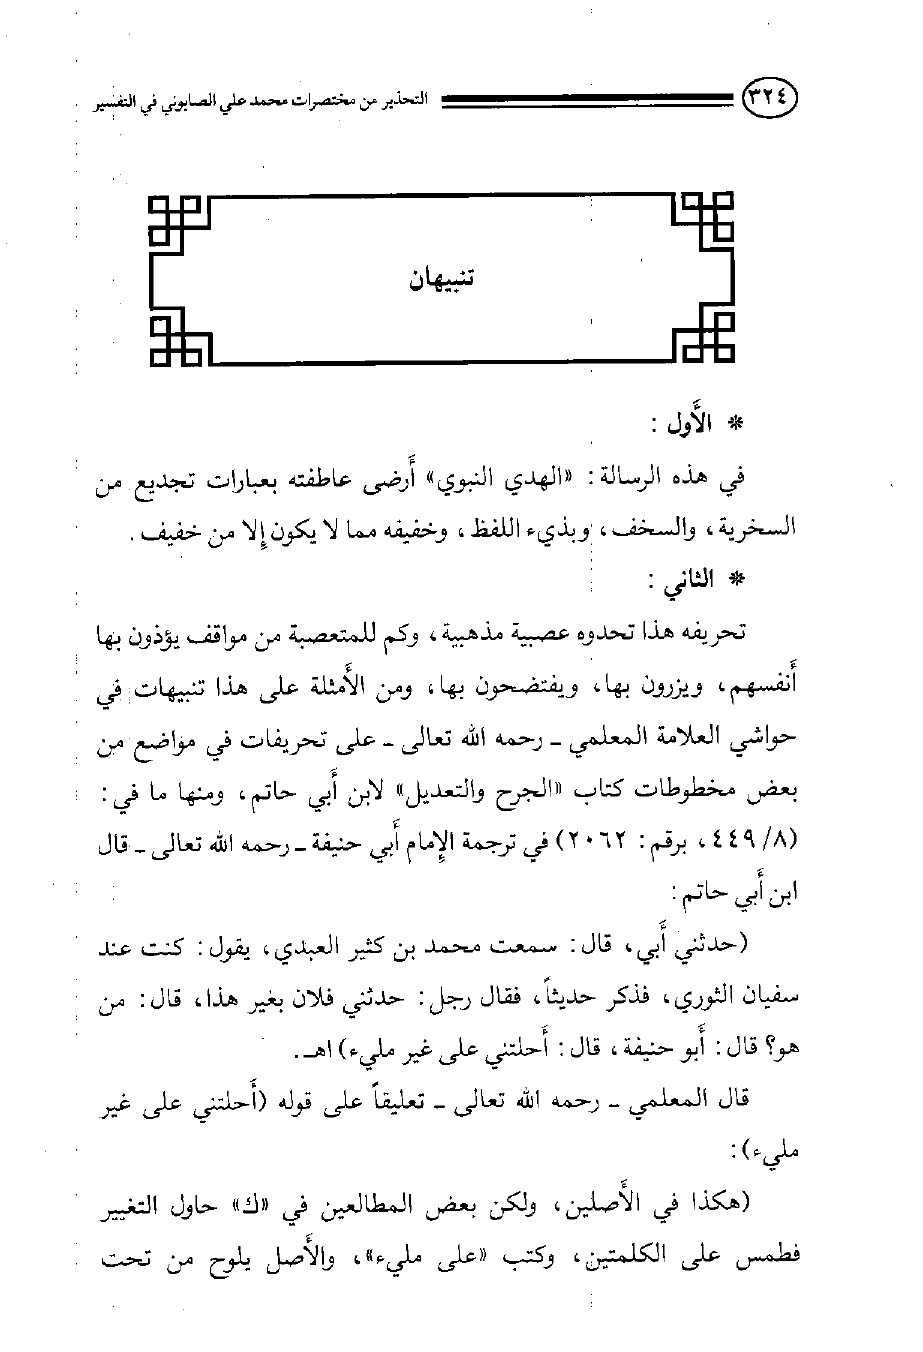 ٣٢٤ التحذير من مختصرات محمد علي الصابوني في التفسير
تنبيهان
* الأَول :
في هذه الرسالة : «الهدي النبوي» أَرضى عاطفته بعبارات تجديع من
السخرية ، والسخف ، وبذيء اللفظ ، وخفيفه مما لا يكون إلا من خفيف .
* الثاني :
تحريفه هذا تحدوه عصبية مذهبية ، وكم للمتعصبة من مواقف يؤذون بها
أَنفسهم ، ويزرون بها ، ويفتضحون بها ، ومن الأَمثلة على هذا تنبيهات في
حواشي العلامة المعلمي ـ رحمه الله تعالى ـ على تحريفات في مواضع من
بعض مخطوطات كتاب «الجرح والتعديل» لابن أَبي حاتم ، ومنها ما في :
(٨/ ٤٤٩ ، برقم : ٢٠٦٢) في ترجمة الإِمام أَبي حنيفة ـ رحمه الله تعالى ـ قال
ابن أَبي حاتم :
(حدثني أَبي ، قال : سمعت محمد بن كثير العبدي ، يقول : كنت عند
سفيان الثوري ، فذكر حديثاً ، فقال رجل : حدثني فلان بغير هذا ، قال : من
هو؟ قال : أَبو حنيفة ، قال : أَحلتني على غير مليء) اهـ .
قال المعلمي ـ رحمه الله تعالى ـ تعليقاً على قوله (أَحلتني على غير
مليء) :
(هكذا في الأَصلين ، ولكن بعض المطالعين في «ك» حاول التغيير
فطمس على الكلمتين ، وكتب «على مليء» ، والأَصل يلوح من تحت